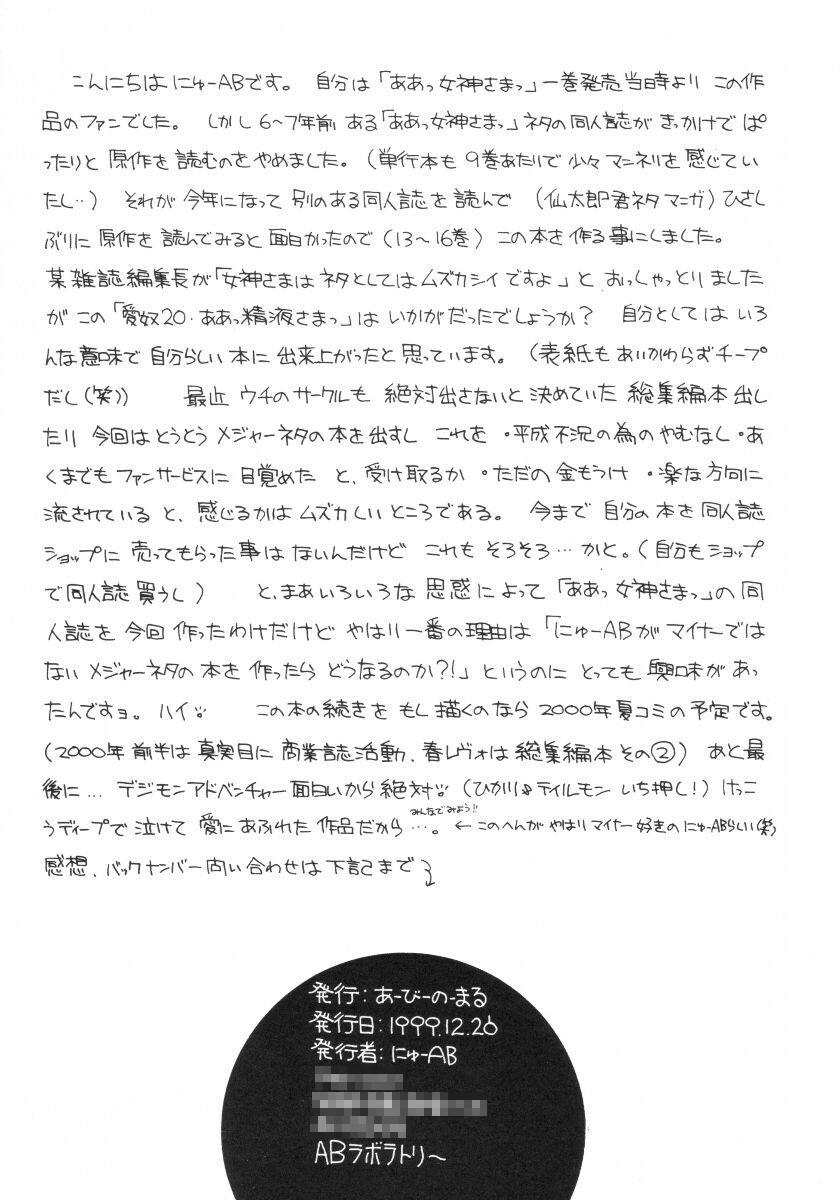 こんにちは にゅーABです。 自分は「ああっ女神さまっ」一巻発売当時より この作
品のファンでした。 しかし 6〜7年前 ある「ああっ女神さまっ」ネタの同人誌が きっかけで ぱ
ったりと 原作を 読むのをやめました。(単行本も 9巻あたりで少々マンネリを感じてい
たし‥) それが 今年になって 別のある同人誌を 読んで (仙太郎君ネタ マンガ) ひさし
ぶりに 原作を 読んでみると 面白かったので (13〜16巻) この本を作る事にしました。
某雑誌編集長が「女神さまは ネタとしては ムズカシイですよ」と おっしゃっとりました
が この「愛奴20・ああっ精液さまっ」は いかがだったでしょうか? 自分としては いろ
んな意味で 自分らしい 本に 出来上がったと 思っています。(表紙も あいかわらずチープ
だし(笑)) 最近 ウチのサークルも 絶対出さないと 決めていた 総集編本 出し
たり 今回はとうとう メジャーネタの本を出すし これを ・平成不況の為のやむなし ・あ
くまでもファンサービスに 目覚めた と、受け取るか ・ただの金もうけ ・楽な方向に
流されている と、感じるかは ムズカしい ところである。 今まで 自分の本を 同人誌
ショップに 売ってもらった事は ないんだけど これも そろそろ…かと。(自分もショップ
で同人誌買うし) と、まあいろいろな 思惑によって「ああっ女神さまっ」の 同
人誌を 今回 作ったわけだけど やはり一番の理由は「にゅーABが マイナーでは
ない メジャーネタの 本を 作ったら どうなるのか?!」というのに とっても 興味があっ
たんですョ。ハイ。 この本の続きを もし描くのなら 2000年夏コミの予定です。
(2000年 前半は 真実目に 商業誌活動、春レヴォは 総集編本 その②) あと最
後に… デジモンアドベンチャー面白いから絶対!! (ひかり&テイルモン いち押し!) けっこ
みんなでみよう!!
うディープで 泣けて 愛にあふれた 作品だから…。 ← このへんが やはりマイナー好きの にゅーABらしい(笑)
感想、バックナンバー問い合わせは 下記まで
発行:あーびーのーまる
発行日:1999.12.26
発行者:にゅーAB
ABラボラトリ〜